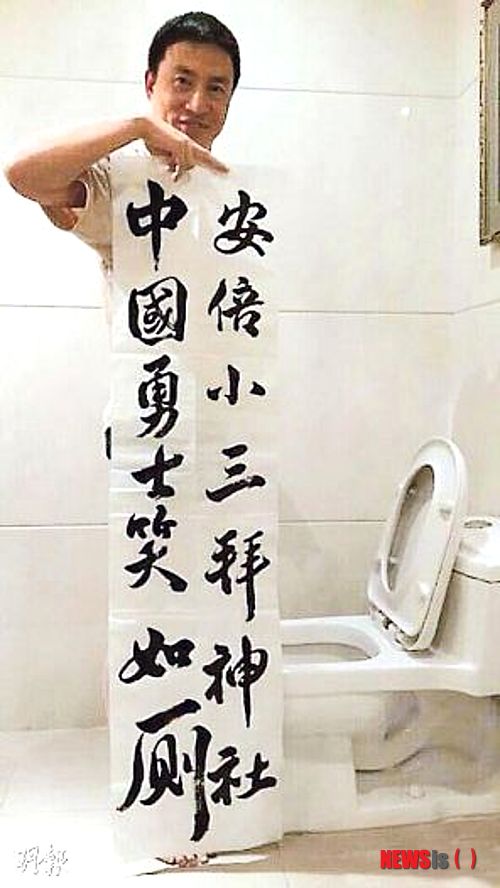 安倍小三拜神社
中國勇士笑如厠
明報
NEWSis ( )